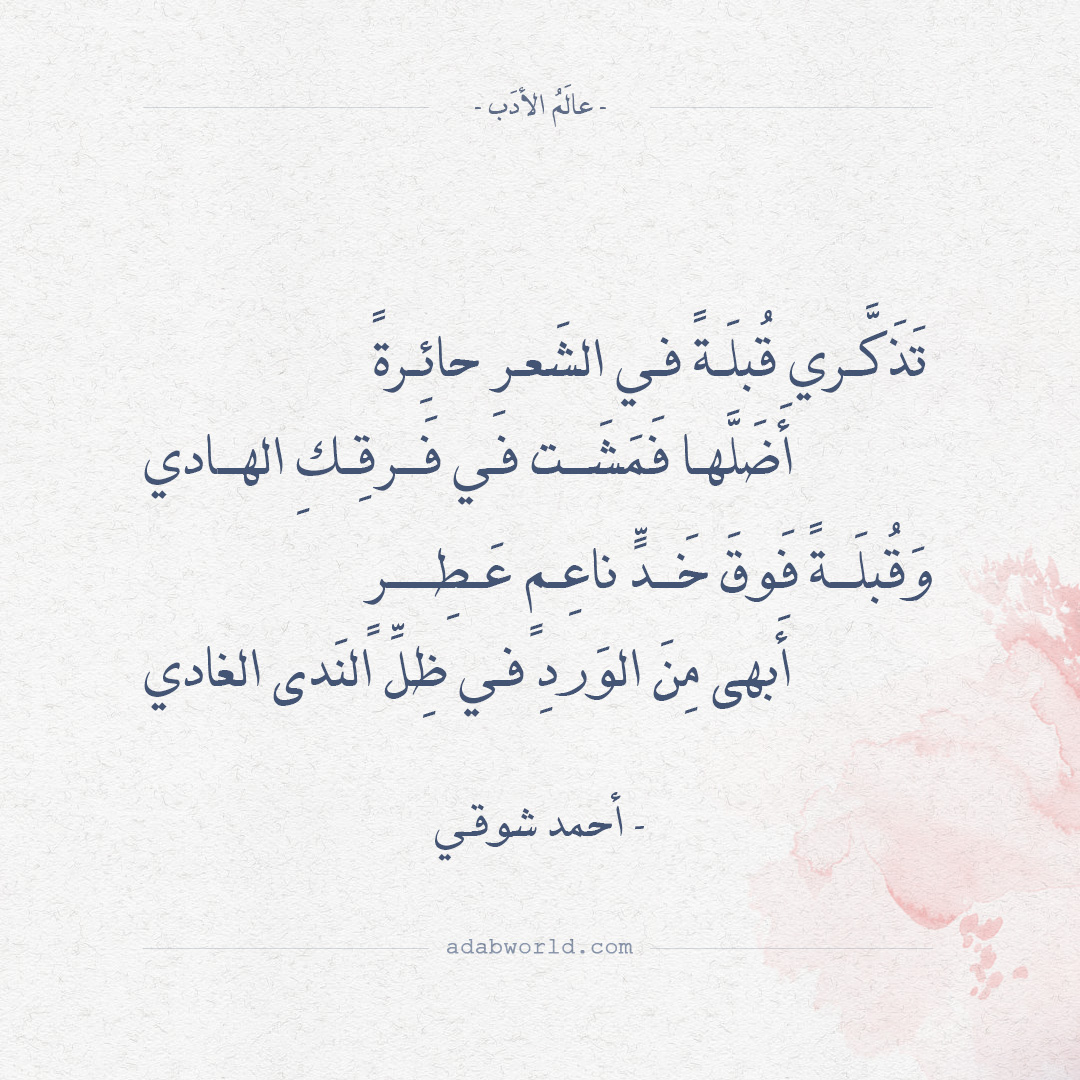 - عالَمُ الأدَب -
تَذَكَّري قُبلَةً في الشَعرِ حائِرةً
أَضَلَّها فَمَشَت في فَرقِكِ الهادي
وَقُبلَةً فَوقَ خَدٍّ ناعِمٍ عَطِرٍ
أَبهى مِنَ الوَردِ في ظِلِّ النَدى الغادي
- أحمد شوقي
adabworld.com